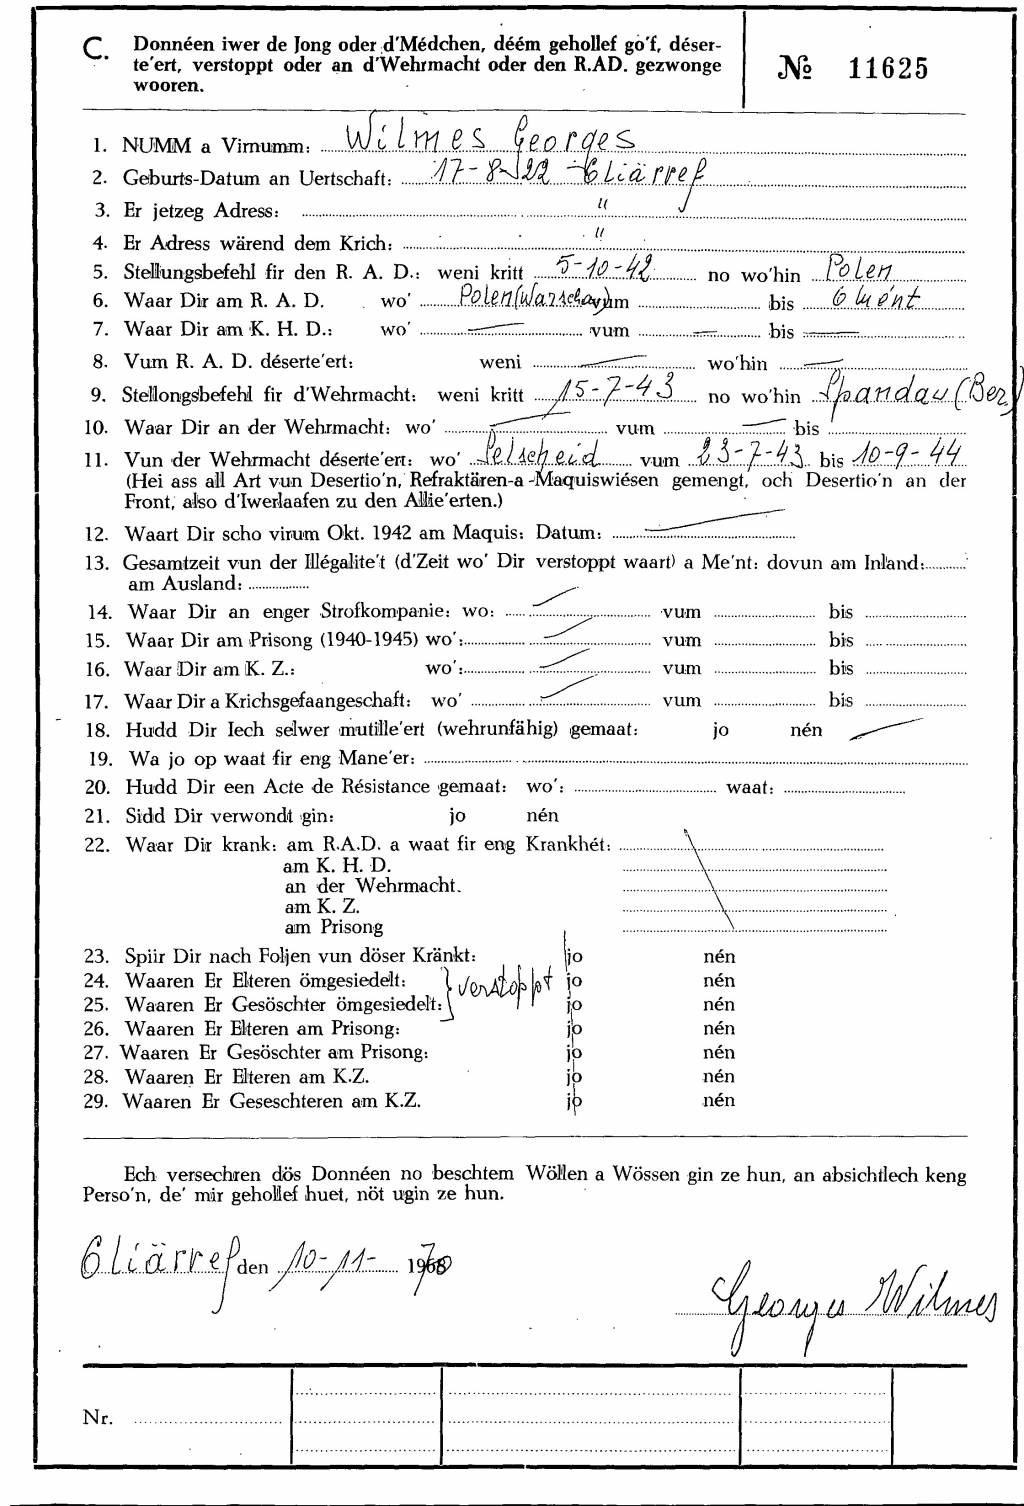 C. Donnéen iwer de Jong oder d'Médchen, déém gehollef go'f, déser-
te'ert, verstoppt oder an d'Wehrmacht oder den R.AD. gezwonge
wooren.
№ 11625
1. NUMM a Virnumm: Wilmes Georges
2. Geburts-Datum an Uertschaft: 17-8-22 - Eliärref
3. Er jetzeg Adress: "
4. Er Adress wärend dem Krich: "
5. Stellungsbefehl fir den R. A. D.: weni kritt 5-10-42 no wo'hin Polen
6. Waar Dir am R. A. D. wo' Polen (Warschav) vum bis 6 Mént
7. Waar Dir am K. H. D.: wo' — vum — bis —
8. Vum R. A. D. déserte'ert: weni — wo'hin —
9. Stellongsbefehl fir d'Wehrmacht: weni kritt 15-7-43 no wo'hin Spandau (Ber)
10. Waar Dir an der Wehrmacht: wo' — vum — bis
11. Vun der Wehrmacht déserte'ert: wo' Pelscheid vum 23-7-43 bis 10-9-44
(Hei ass all Art vun Desertio'n, Refraktären-a -Maquiswiésen gemengt, och Desertio'n an der
Front, also d'Iwerlaafen zu den Allie'erten.)
12. Waart Dir scho virum Okt. 1942 am Maquis: Datum: —
13. Gesamtzeit vun der Illégalite't (d'Zeit wo' Dir verstoppt waart) a Me'nt: dovun am Inland:
am Ausland:
14. Waar Dir an enger Strofkompanie: wo: — vum bis
15. Waar Dir am Prisong (1940-1945) wo': — vum bis
16. Waar Dir am K. Z.: wo': — vum bis
17. Waar Dir a Krichsgefaangeschaft: wo' — vum bis
18. Hudd Dir Iech selwer mutille'ert (wehrunfähig) gemaat: jo nén —
19. Wa jo op waat fir eng Mane'er:
20. Hudd Dir een Acte de Résistance gemaat: wo': waat:
21. Sidd Dir verwondt gin: jo nén
22. Waar Dir krank: am R.A.D. a waat fir eng Krankhét:
am K. H. D.
an der Wehrmacht.
am K. Z.
am Prisong
23. Spiir Dir nach Foljen vun döser Kränkt: jo nén
24. Waaren Er Elteren ömgesiedelt: verstoppt jo nén
25. Waaren Er Gesöschter ömgesiedelt: jo nén
26. Waaren Er Elteren am Prisong: jo nén
27. Waaren Er Gesöschter am Prisong: jo nén
28. Waaren Er Elteren am K.Z. jo nén
29. Waaren Er Geseschteren am K.Z. jo nén
Ech versechren dös Donnéen no beschtem Wöllen a Wössen gin ze hun, an absichtlech keng
Perso'n, de' mir gehollef huet, nöt ugin ze hun.
Eliärref den 10-11- 1970
Georges Wilmes
Nr.